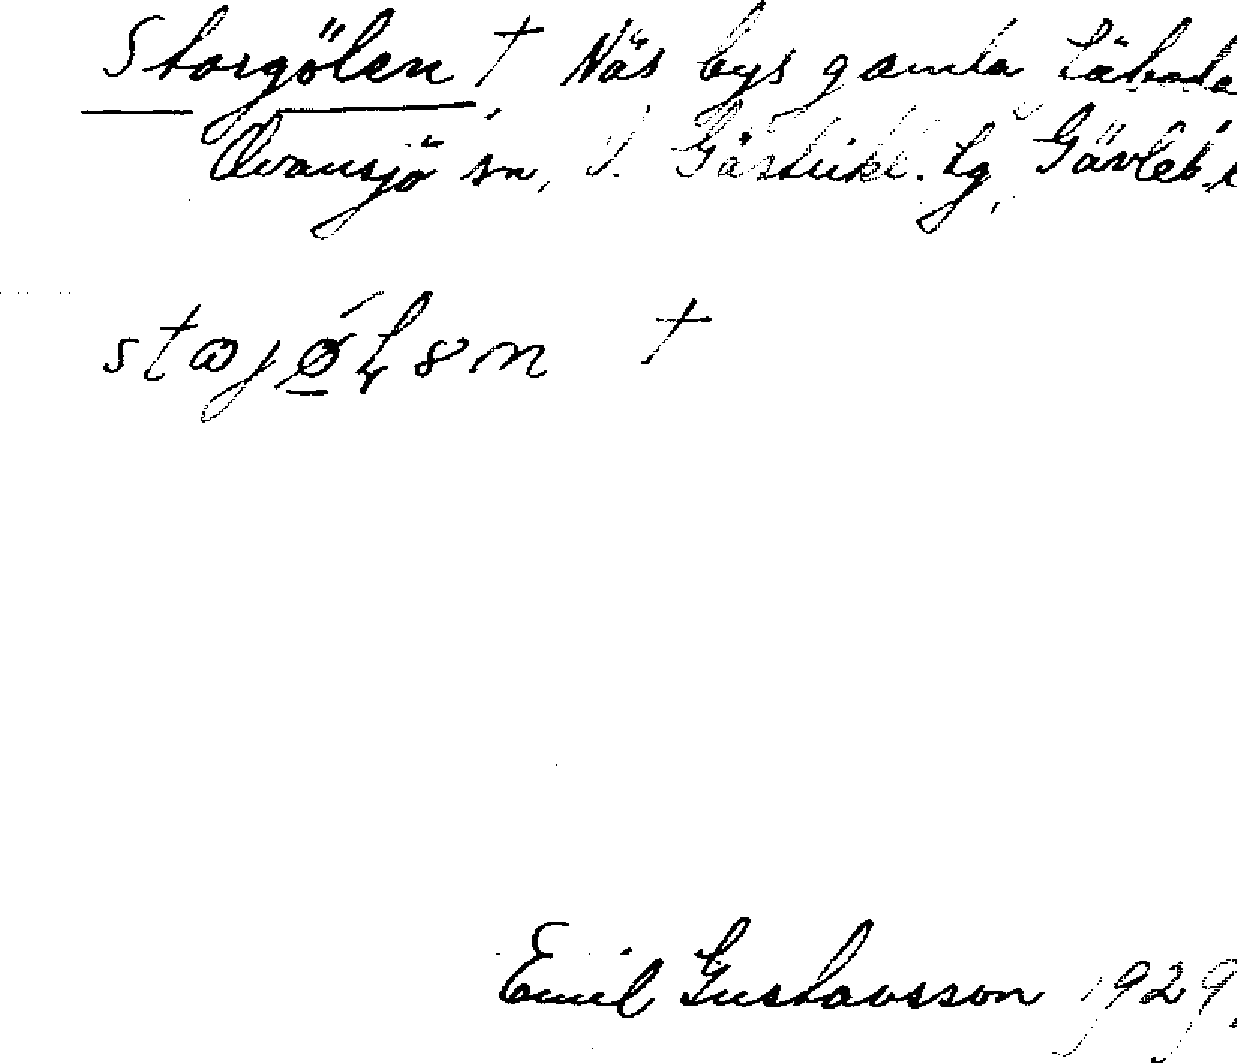 Storgölen † Näs bys gamla
Ovansjö sn, V. Gästrikl. tg, Gävleb. l
stajǿlən †
Emil Gustavsson 1929.